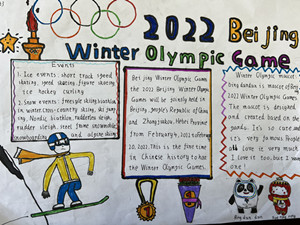 2022 Beijing
Winter Olympic Game
Events
1. Ice events: short track speed
skating, speed skating, figure skating,
ice hockey curling
2. Snow events: freestyle skiing, biathlon,
cross-country skiing, ski jump-
ing, Nordic biathlon,
sleigh steel frame snowmobile
snowboarding and alpine skiing
Beijing Winter Olympic Game
the 2022 Beijing Winter Olympic
Games will be jointly held in
Beijing, People's Republic of China and
Zhangjiakou, Hebei Province
from February 4, 2022 to February
20, 2022. This is the first time
in Chinese history to host
the Winter Olympic Games.
Winter Olympic mascot
bing dundun is mascot of Beijing
2022 Winter Olympic Games.
The mascot is designed
and created based on the
panda. It's so cute and
is very famous. People
all love is very much.
I love it too, but I have
one!